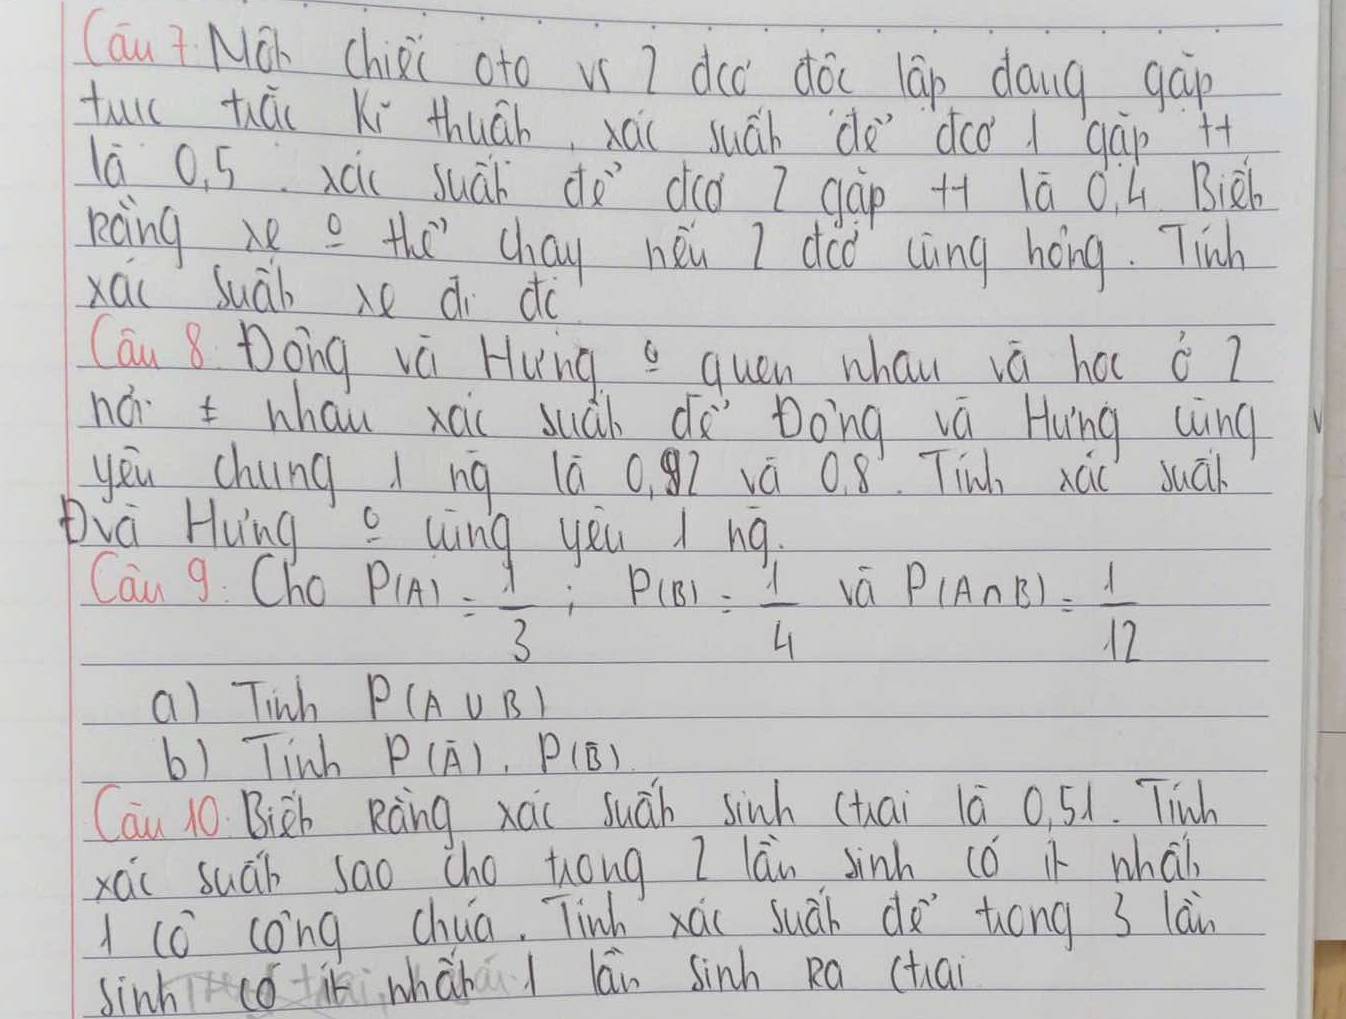 Câu 7. Một chiếc oto vs 2 đcơ độc lập đang gặp
trục trặc kĩ thuật, xác suất để đcơ 1 gặp tt
là 0,5. xác suất để đcơ 2 gặp tt là 0,4. Biết
Rằng xe 0 thể chạy nếu 2 đcơ cùng hỏng. Tính
xác suất xe đi đc
Câu 8. Đông và Hưng 0 quen nhau và học ở 2
nơi ≠ nhau xác suất để Đông và Hưng cùng
yêu chung 1 ng là 0,92 và 0,8. Tính xác suất
Đvà Hưng 0 cùng yêu 1 ng.
Câu 9: Cho P(A) = 1/3 ; P(B) = 1/4 và P(A∩B) = 1/12
a) Tính P(A∪B)
b) Tính P(Ā), P(B̄)
Câu 10. Biết Rằng xác suất sinh ctrai là 0,51. Tính
xác suất sao cho trong 2 lần sinh có ít nhất
1 cô công chúa. Tính xác suất để trong 3 lần
sinh có ít nhất 1 lần sinh Ra ctrai